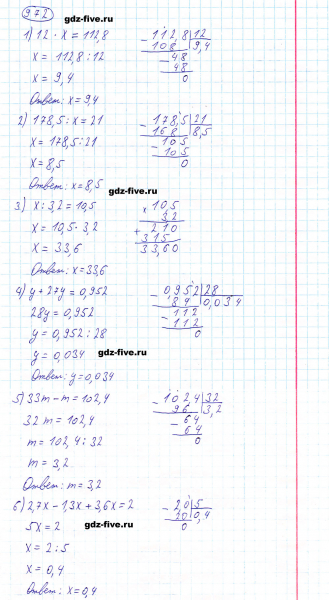 972 gdz-five.ru
1) 12 · x = 112,8
x = 112,8 : 12
x = 9,4
Ответ: x = 9,4
- 112,8 | 12
108 | 9,4
- 48
48
0
2) 178,5 : x = 21
x = 178,5 : 21
x = 8,5
Ответ: x = 8,5
- 178,5 | 21
168 | 8,5
- 105
105
0
gdz-five.ru
3) x : 3,2 = 10,5
x = 10,5 · 3,2
x = 33,6
Ответ: x = 33,6
× 10,5
3,2
+ 210
315
33,60
4) y + 27y = 0,952
28y = 0,952
y = 0,952 : 28
y = 0,034
Ответ: y = 0,034
- 0,952 | 28
84 | 0,034
- 112
112
0
gdz-five.ru
5) 33m - m = 102,4
32m = 102,4
m = 102,4 : 32
m = 3,2
Ответ: m = 3,2
- 102,4 | 32
96 | 3,2
- 64
64
0
6) 2,7x - 1,3x + 3,6x = 2
5x = 2 gdz-five.ru
x = 2 : 5
x = 0,4
Ответ: x = 0,4
- 20 | 5
20 | 0,4
0
gdz-five.ru